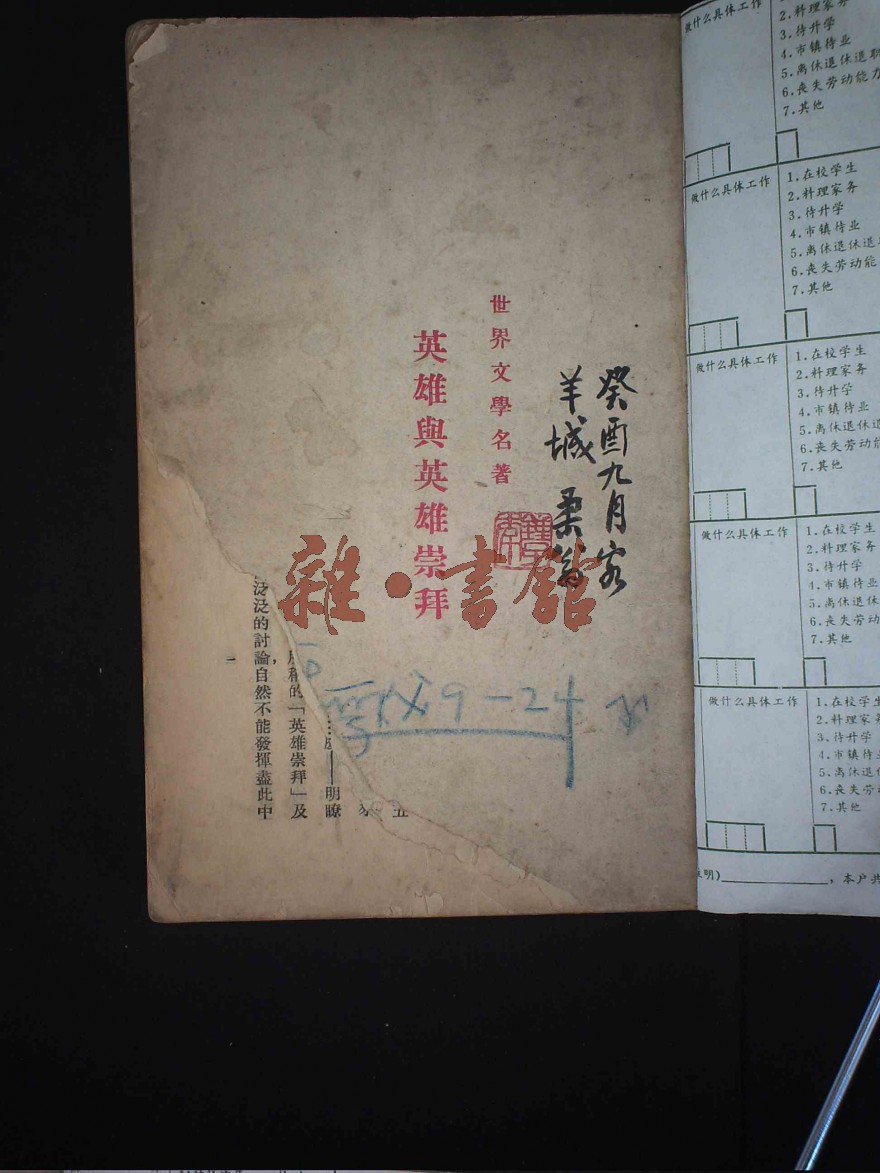 世界文學名著
英雄與英雄崇拜
癸酉九月客
羊城 柔翁
雜·書館
9-24
五
明瞭
的「英雄崇拜」及
泛泛的討論自然不能發揮盡此中
一
做什么具体工作
2.料理家务
3.待升学
4.市镇待业
5.离休退休退职
6.丧失劳动能力
7.其他
做什么具体工作
1.在校学生
2.料理家务
3.待升学
4.市镇待业
5.离休退休退
6.丧失劳动能
7.其他
做什么具体工作
1.在校学生
2.料理家务
3.待升学
4.市镇待业
5.离休退休退
6.丧失劳动能
7.其他
做什么具体工作
1.在校学生
2.料理家务
3.待升学
4.市镇待业
5.离休退休
6.丧失劳动
7.其他
做什么具体工作
1.在校学生
2.料理家
3.待升学
4.市镇待
5.离休退
6.丧失劳
7.其他
明)，本户共